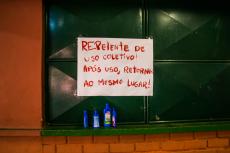 REPELENTE DE
USO COLETIVO!
APÓS USO, RETORNAR
AO MESMO LUGAR!